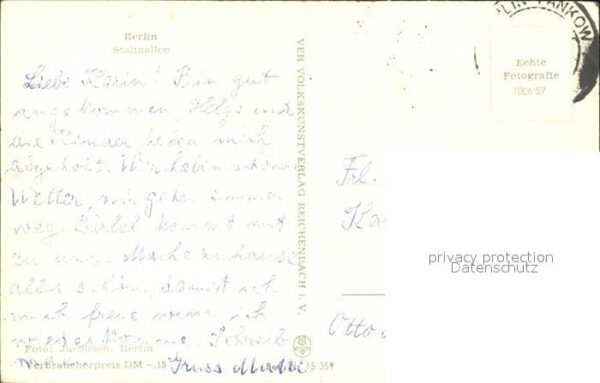 Berlin
Stalinallee
Liebe Karin! Bin gut
angekommen, Helga und
die Kinder haben mich
abgeholt. Wir haben schönes
Wetter, wir gehen immer
weg. Bärbel kommt mit
zu uns. Mache zuhause
alles schön, damit ich
mich freue wenn ich
wiederkomme. Schreib
mal
Gruss Mutti
Foto: Jacobson, Berlin
Verbraucherpreis DM -.15
VEB VOLKSKUNSTVERLAG REICHENBACH I. V.
BERLIN-PANKOW
Echte
Fotografie
1006/57
Frl.
Ka
Otto
15 359
privacy protection
Datenschutz